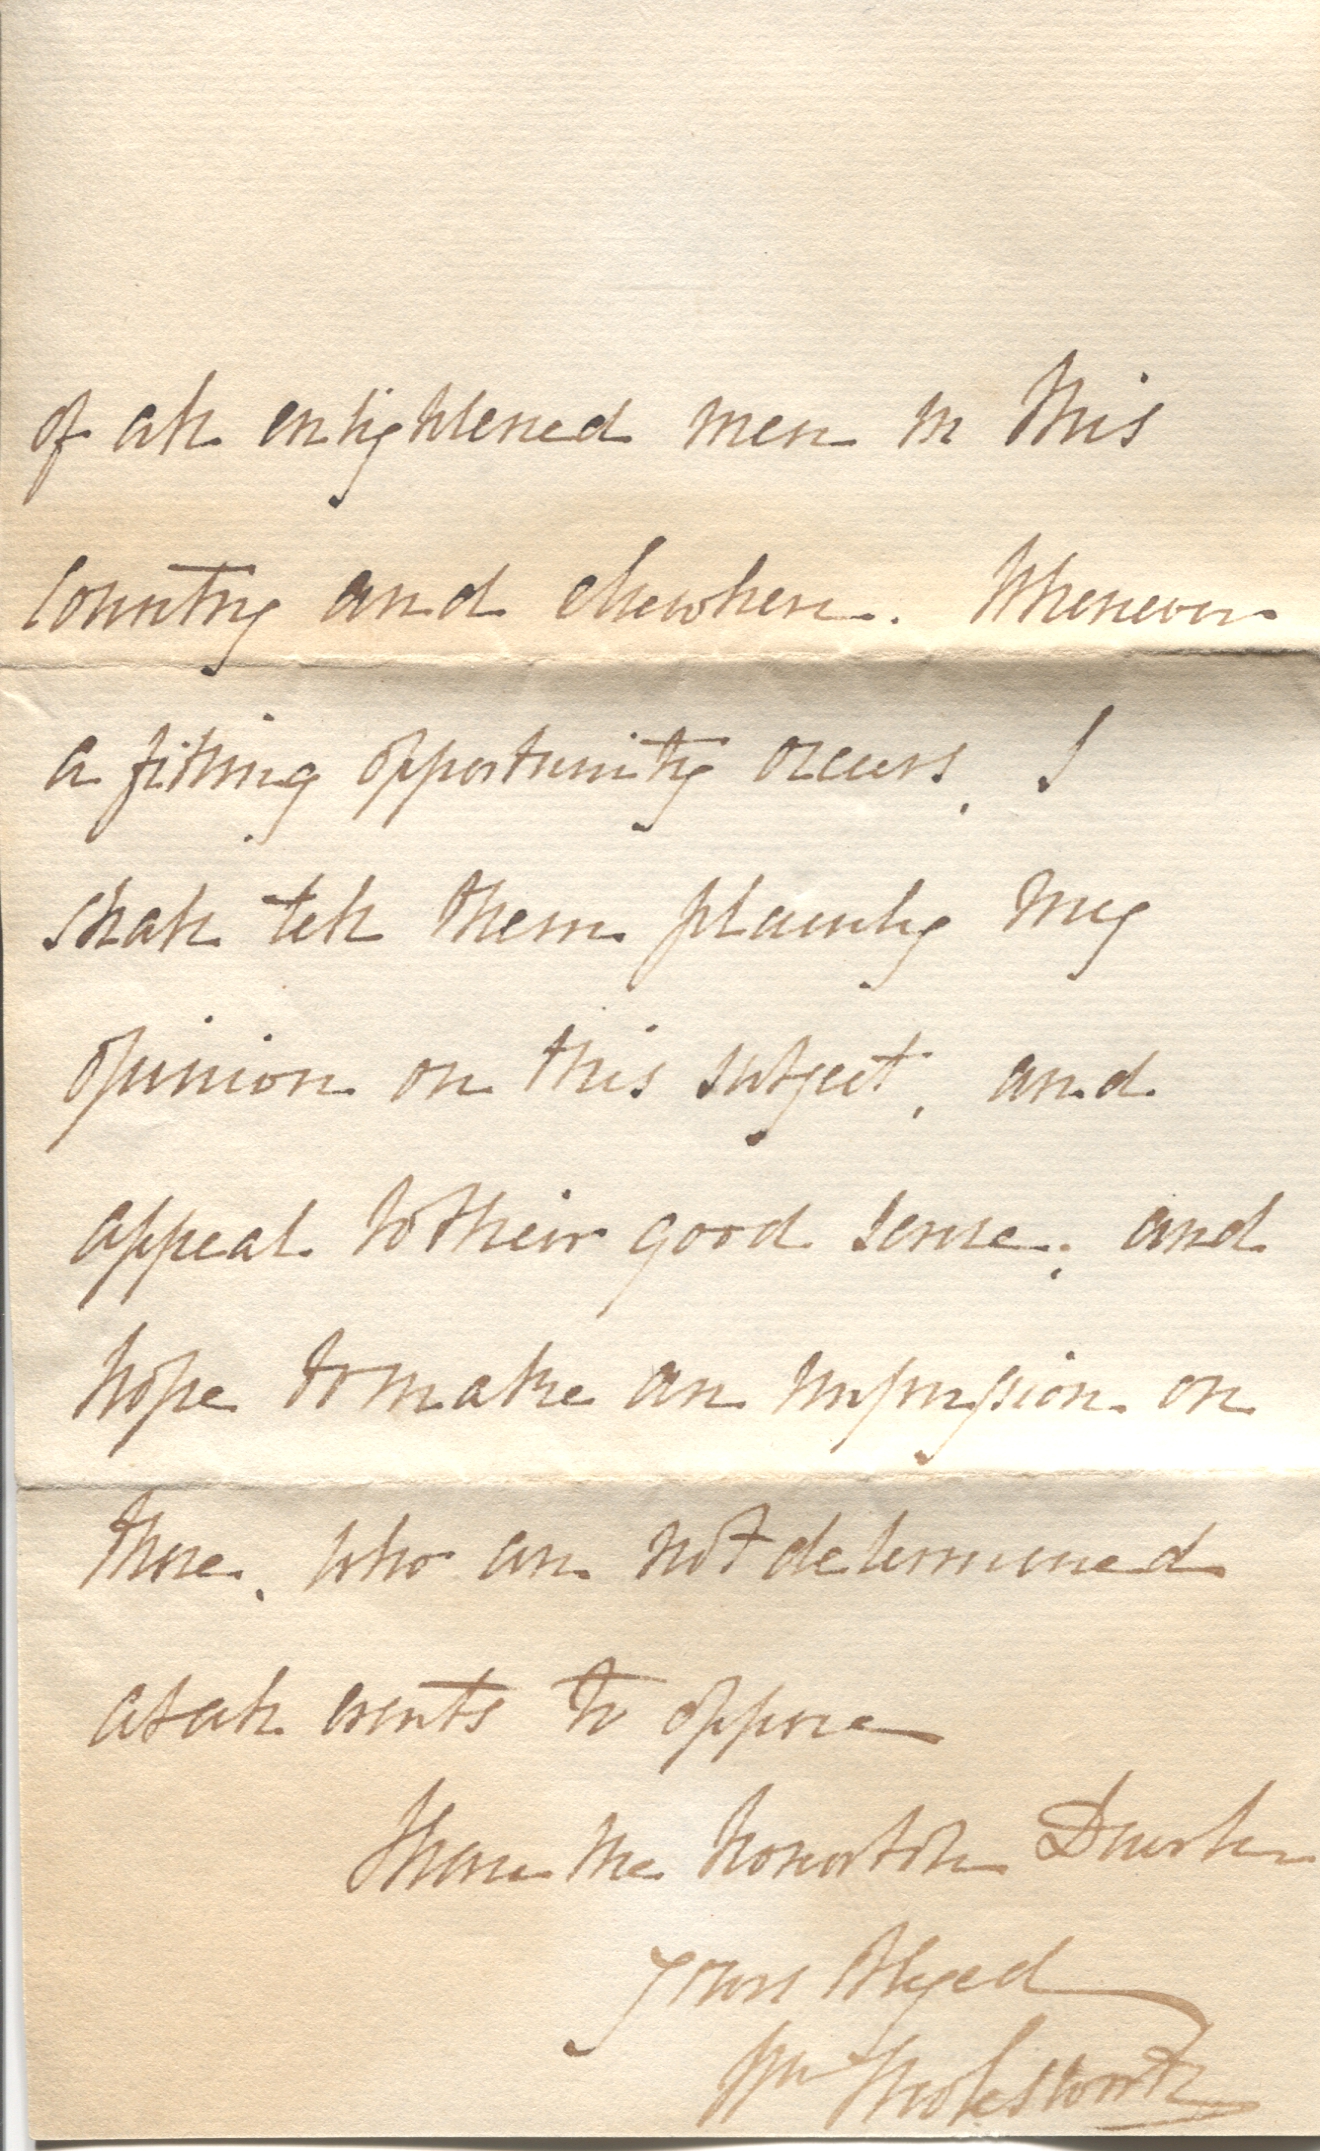 of all enlightened men in this
Country and elsewhere. Whenever
a fitting opportunity occurs, I
shall tell them plainly my
opinion on this subject, and
appeal to their good sense; and
hope to make an impression on
those, who are not determined
at all events to oppose
I have the honor to be Dear Sir
Yours obliged
Wm Molesworth